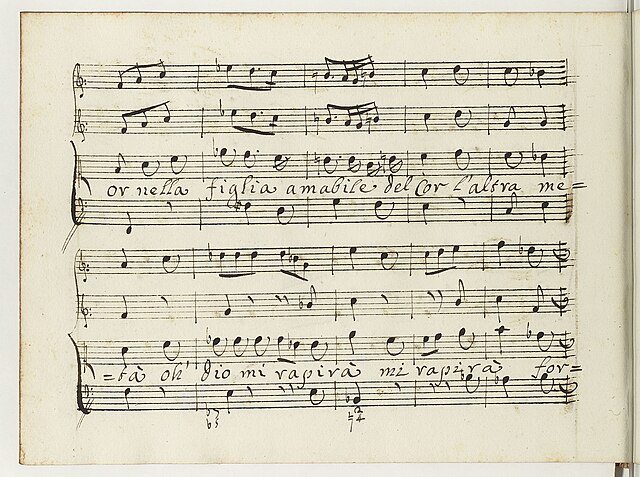 or nella figlia amabile del Cor l'altra me=
=tà oh' Dio mi rapirà mi rapirà for=